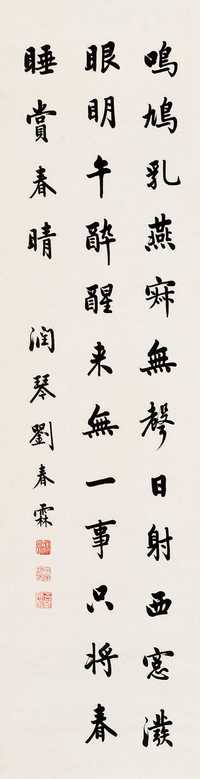 鳴鳩乳燕寂無聲日射西窗潑
眼明午醉醒来無一事只将春
睡賞春晴　潤琴劉春霖